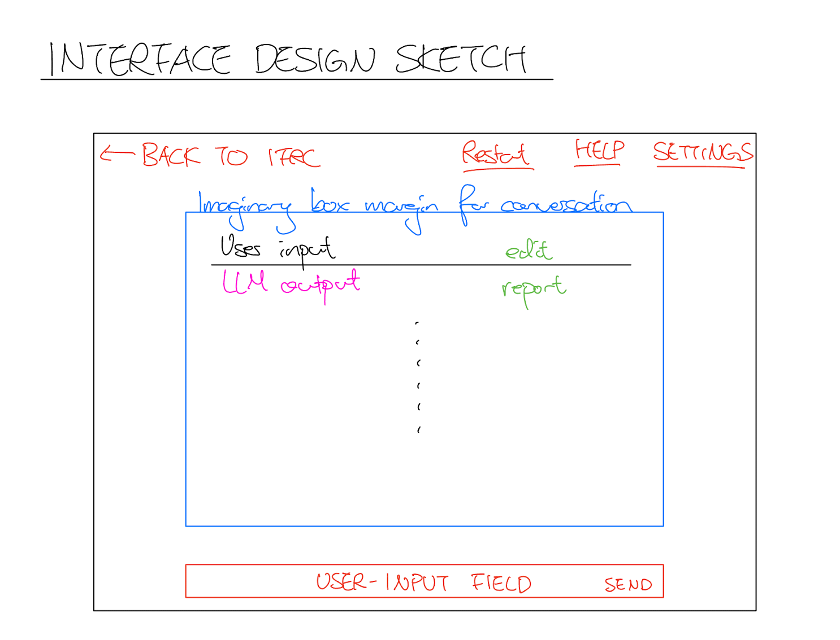 INTERFACE DESIGN SKETCH
← BACK TO IFRC Restart HELP SETTINGS
Imaginary box margin for conversation
User input edit
LLM output report
USER-INPUT FIELD SEND